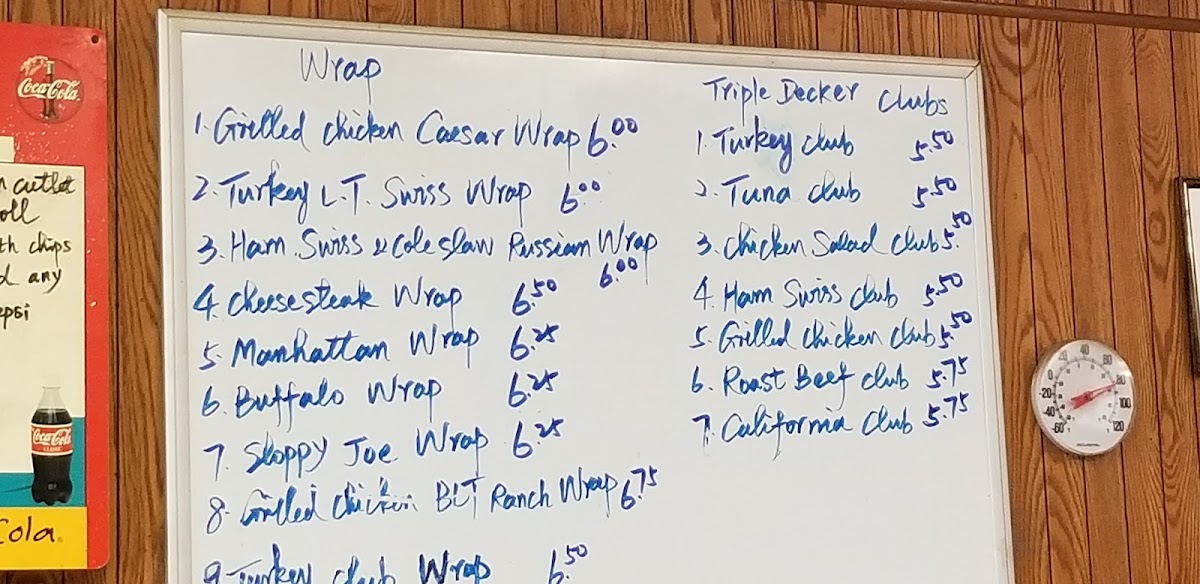 Coca-Cola
cutlet
oll
th chips
d any
epsi
Coca-Cola
Cola
Wrap
1. Grilled chicken Caesar Wrap 6.00
2. Turkey L.T. Swiss Wrap 6.00
3. Ham. Swiss & Coleslaw Russian Wrap
6.00
4. Cheesesteak Wrap 6.50
5. Manhattan Wrap 6.25
6. Buffalo Wrap 6.25
7. Sloppy Joe Wrap 6.25
8. Grilled chicken BLT Ranch Wrap 6.75
9. Turkey club Wrap 6.50
Triple Decker Clubs
1. Turkey club 5.50
2. Tuna club 5.50
3. Chicken Salad Club 5.50
4. Ham Swiss club 5.50
5. Grilled chicken club 5.50
6. Roast Beef club 5.75
7. California Club 5.75
-60 -40 -20 0 20 40 60 80 100 120